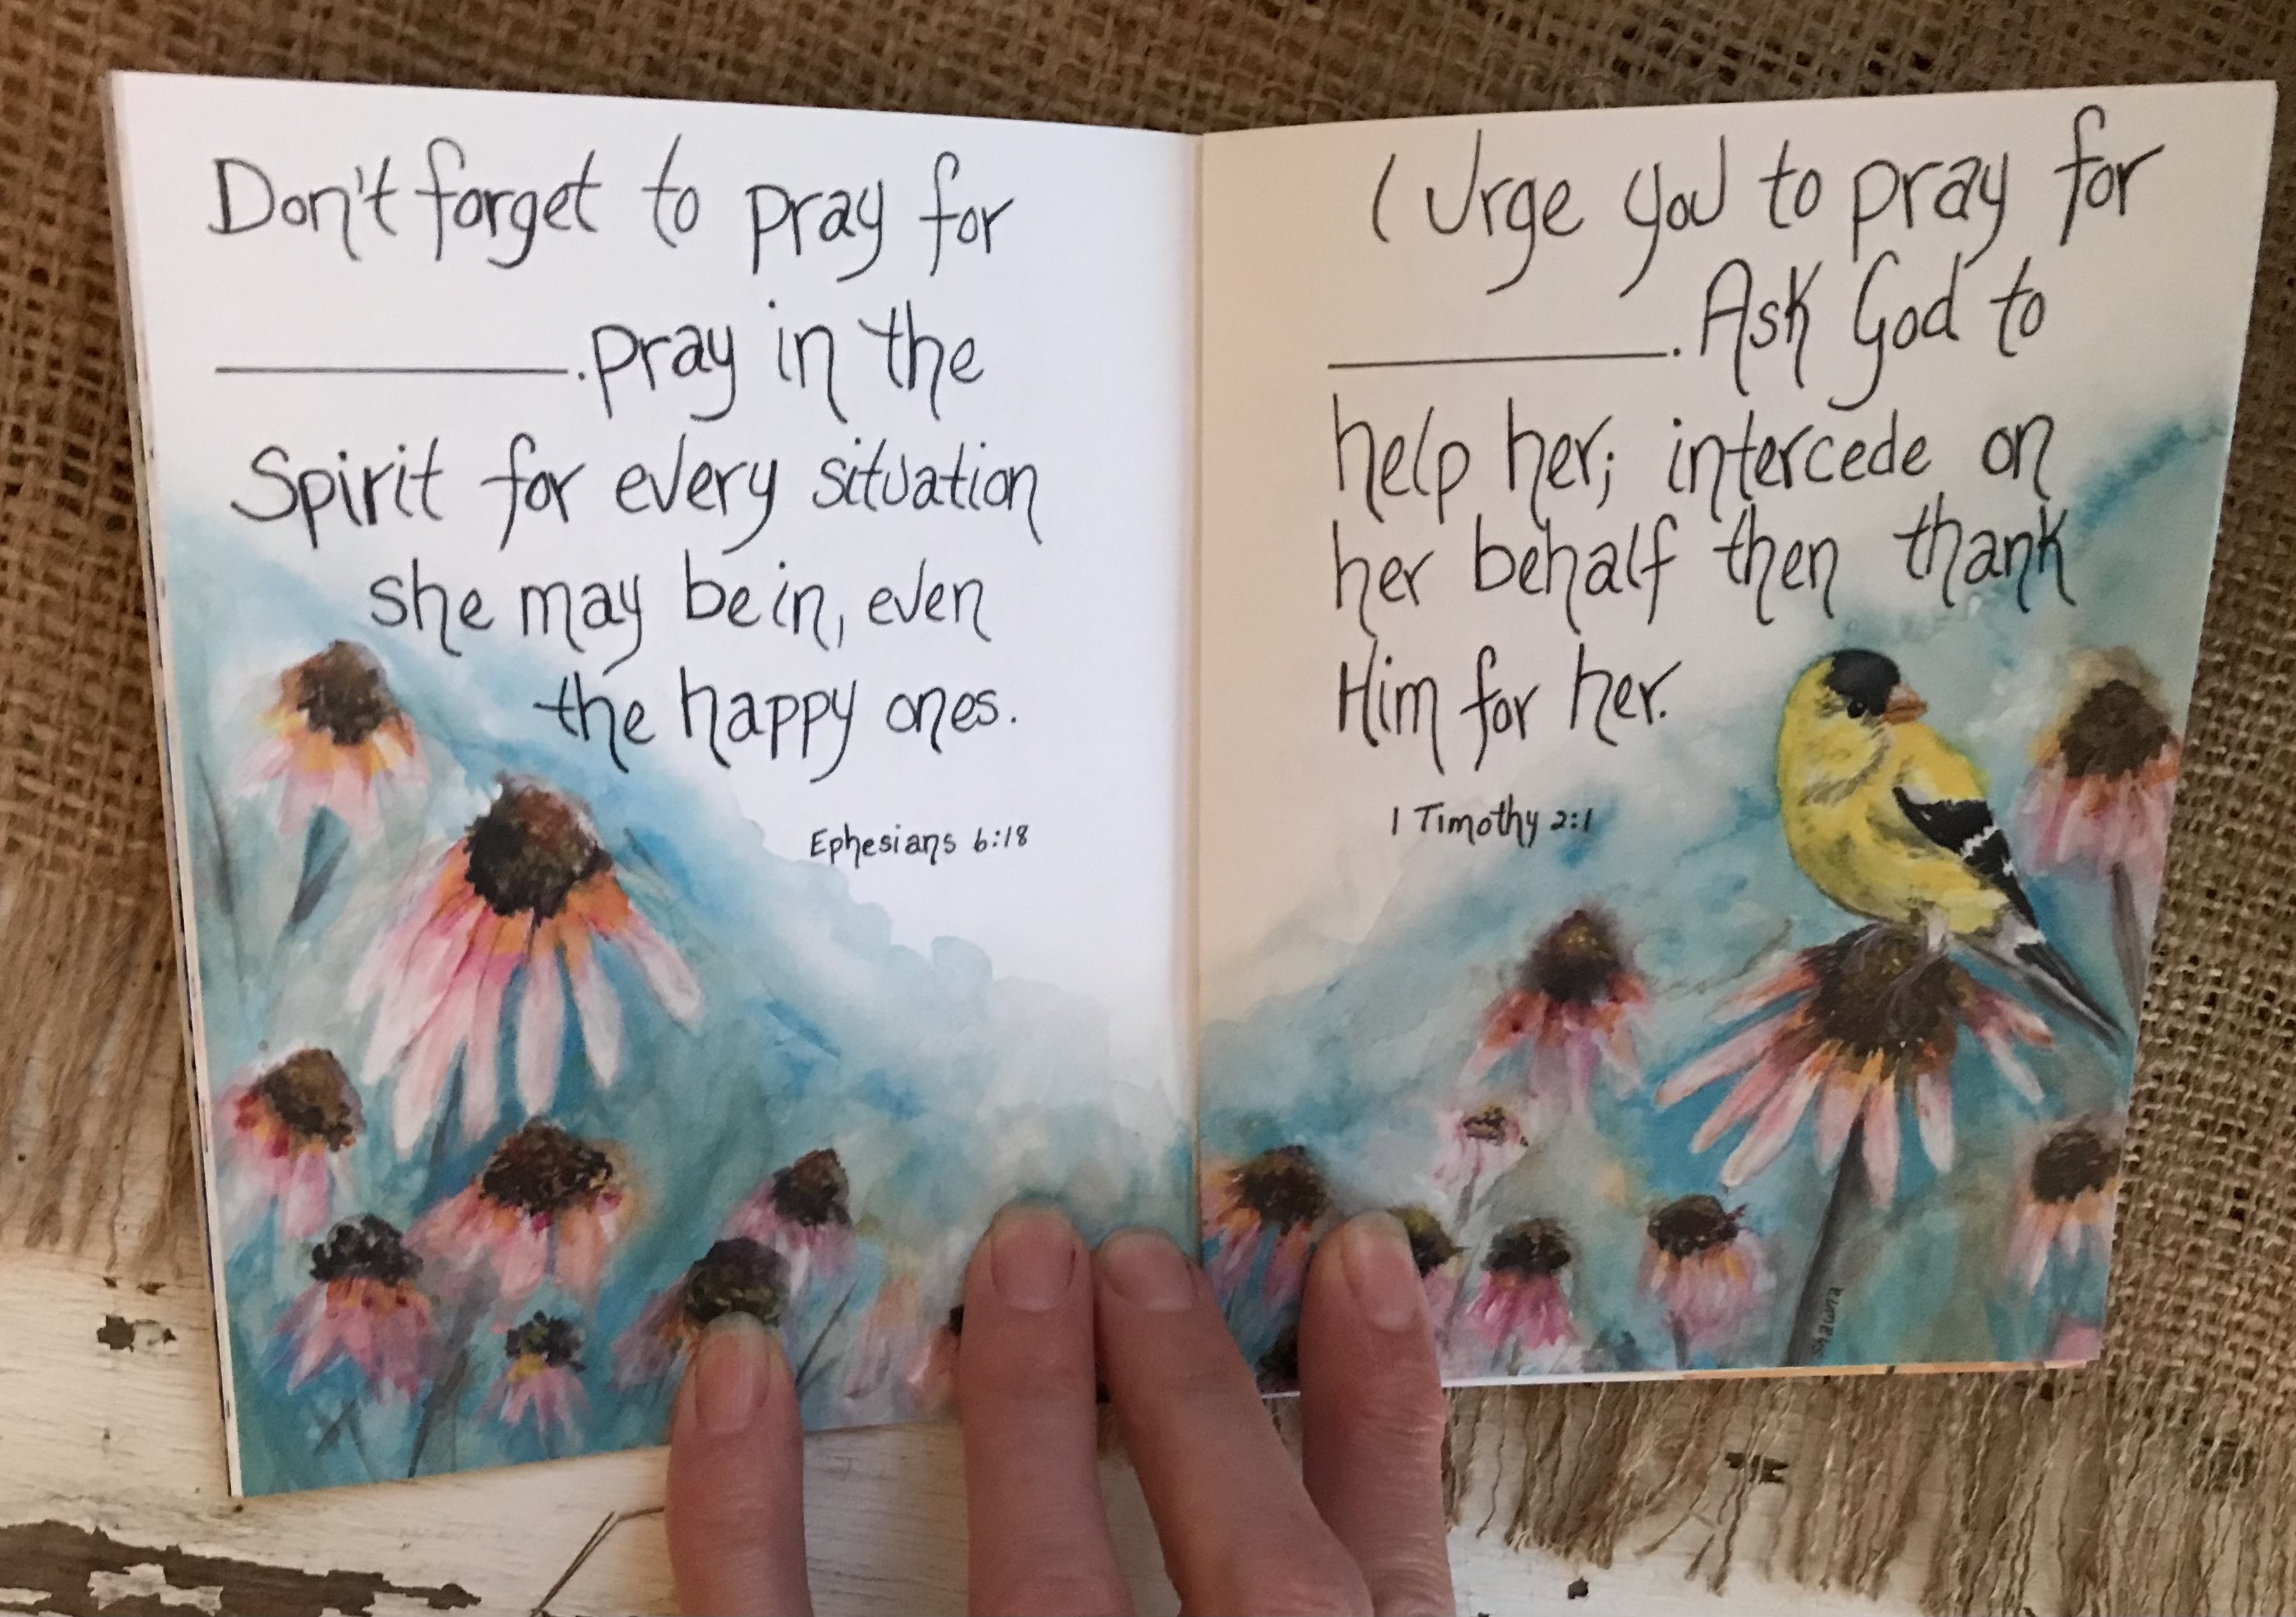 Don't forget to pray for
__________. pray in the
Spirit for every situation
she may be in, even
the happy ones.
Ephesians 6:18
I Urge you to pray for
__________. Ask God to
help her; intercede on
her behalf then thank
Him for her.
1 Timothy 2:1
Shawna